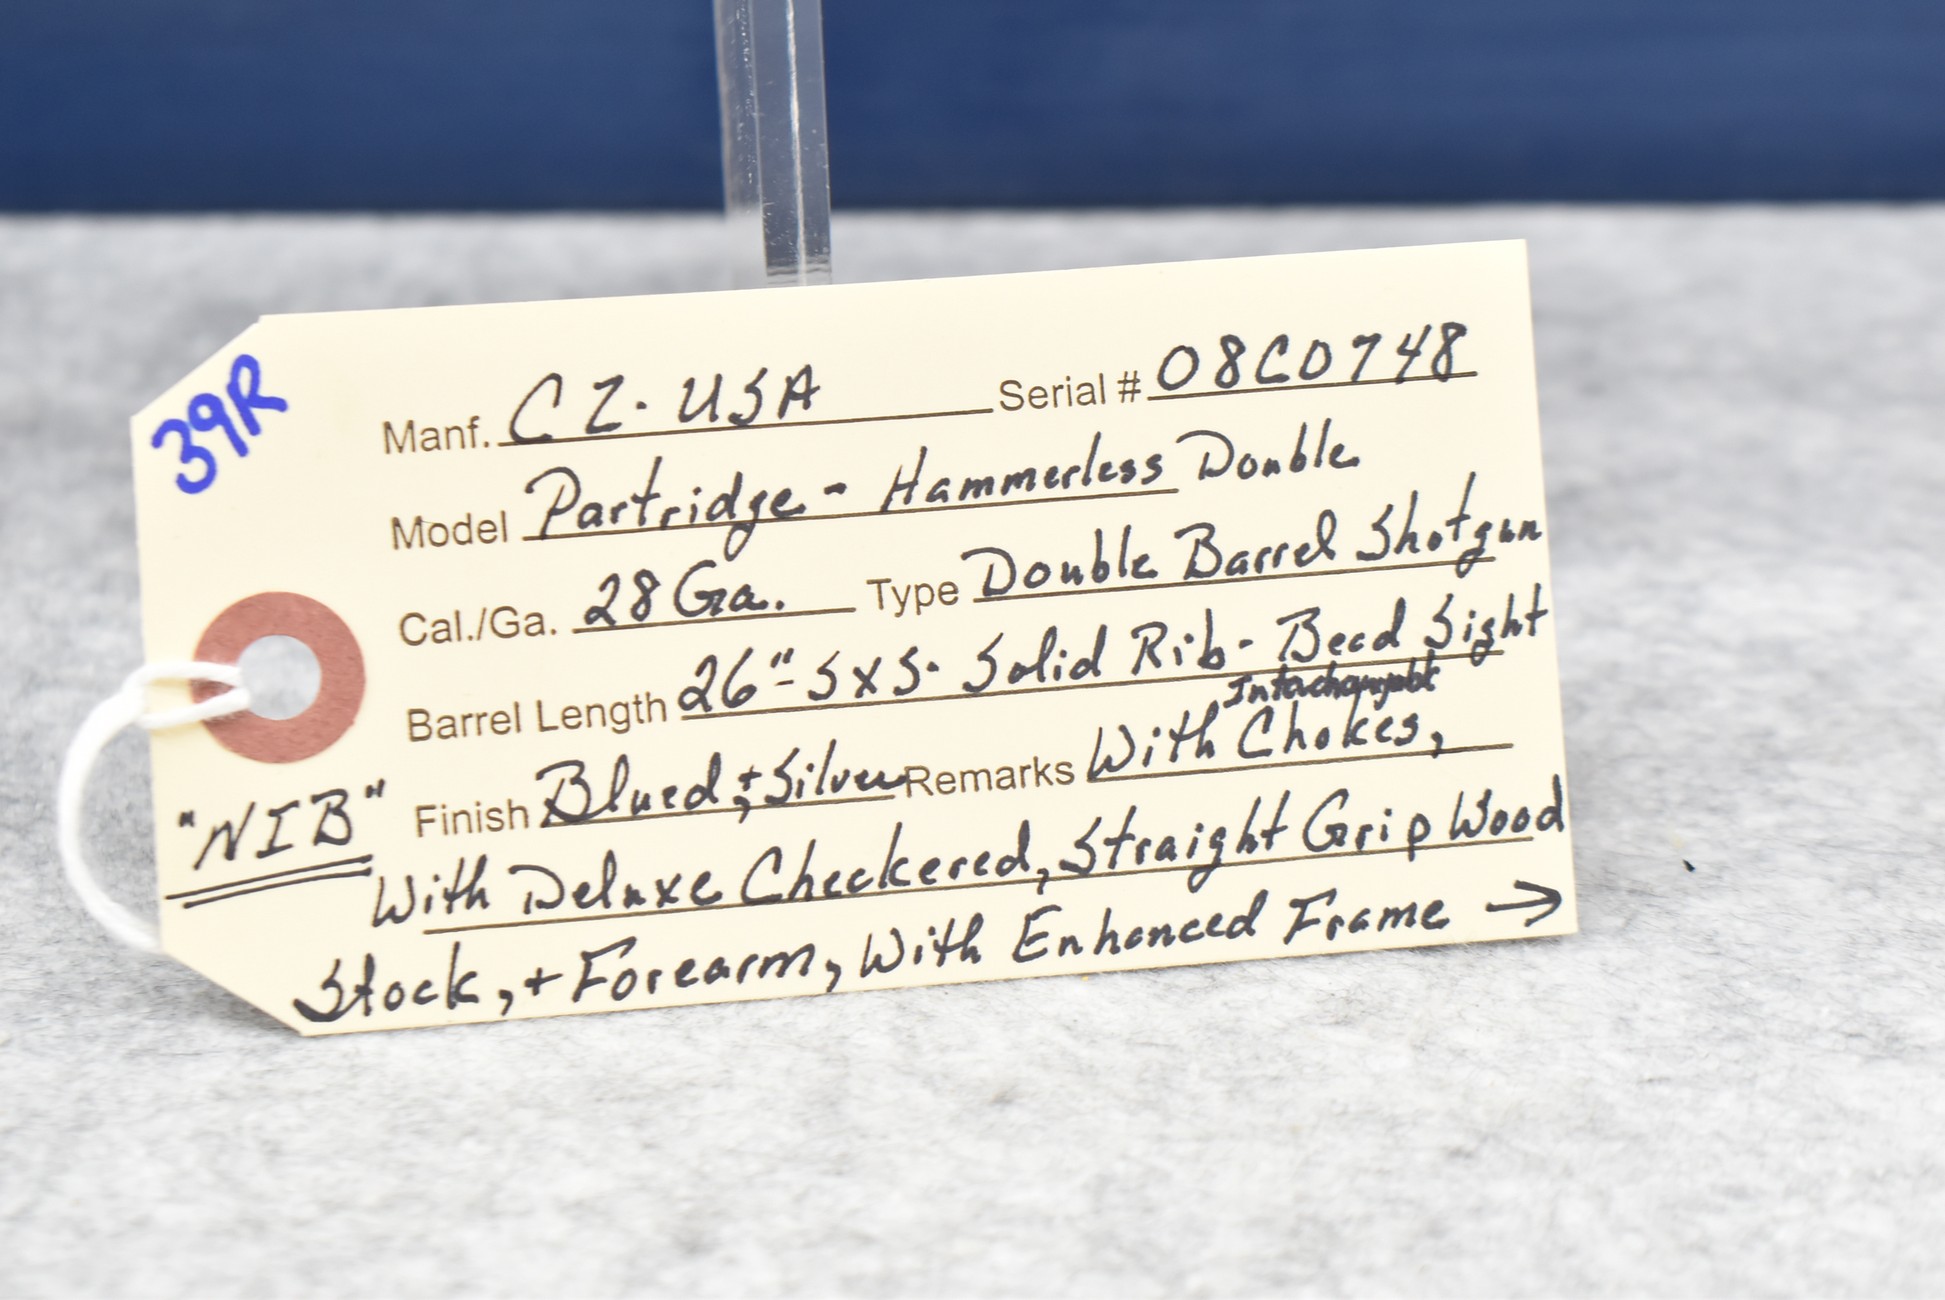 39R
Manf. CZ-USA Serial # 08C0748
Model Partridge - Hammerless Double
Cal./Ga. 28 Ga. Type Double Barrel Shotgun
Barrel Length 26" - SXS - Solid Rib - Bead Sight
Interchangeable
Finish Blued + Silver Remarks With Chokes,
"NIB"
With Deluxe Checkered, Straight Grip Wood
Stock, + Forearm, With Enhanced Frame →